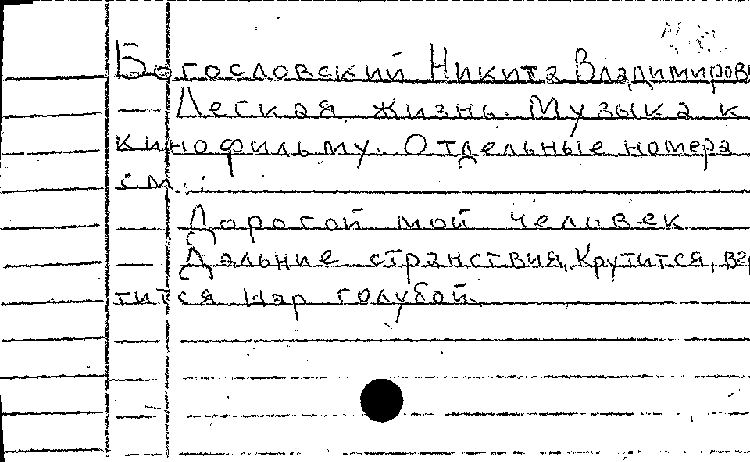 Богословский Никита Владимирови
Легкая жизнь. Музыка к
кинофильму. Отдельные номера
см.:
Дорогой мой человек
Дальние странствия, Крутится, вер
тится шар голубой.